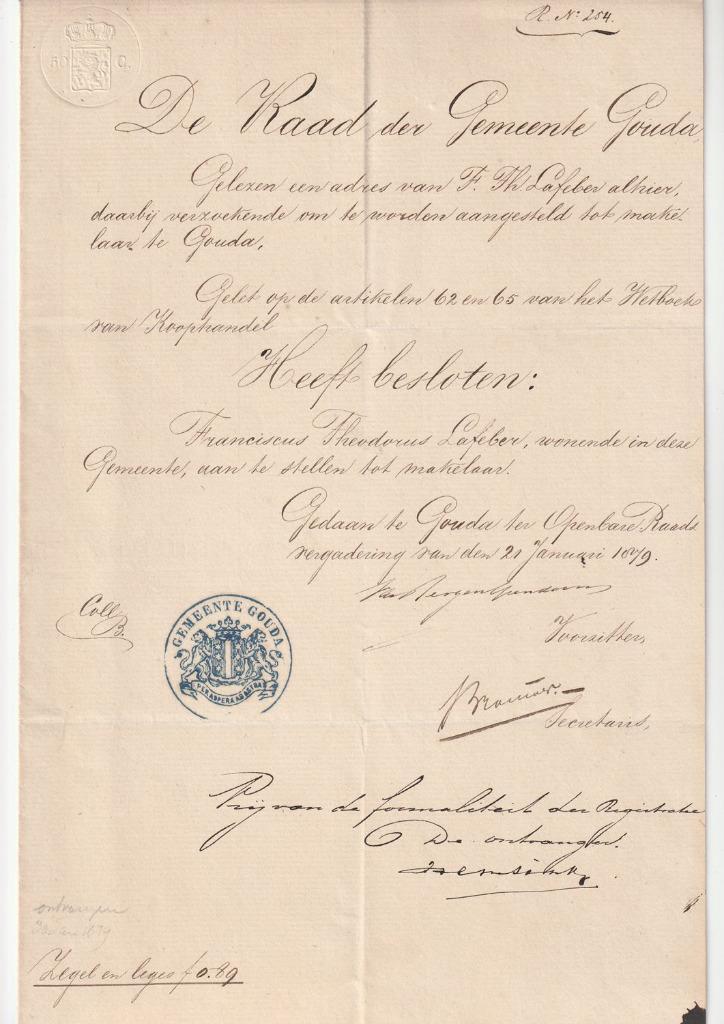 R. No: 254.
50 C.
De Raad der Gemeente Gouda,
Gelezen een adres van F. Th. Lafeber alhier,
daarbij verzoekende om te worden aangesteld tot make-
laar te Gouda,
Gelet op de artikelen 62 en 65 van het Wetboek
van Koophandel
Heeft besloten:
Franciscus Theodorus Lafeber, wonende in deze
Gemeente, aan te stellen tot makelaar.
Gedaan te Gouda ter Openbare Raads
vergadering van den 21 Januari 1879.
Coll
B.
GEMEENTE GOUDA
PER ASPERA AD ASTRA
Voorzitter,
Brouwer.
Secretaris,
Vrij van de formaliteit der Registratie
De ontvanger.
ontvangen
1879
Zegel en leges f 0.89